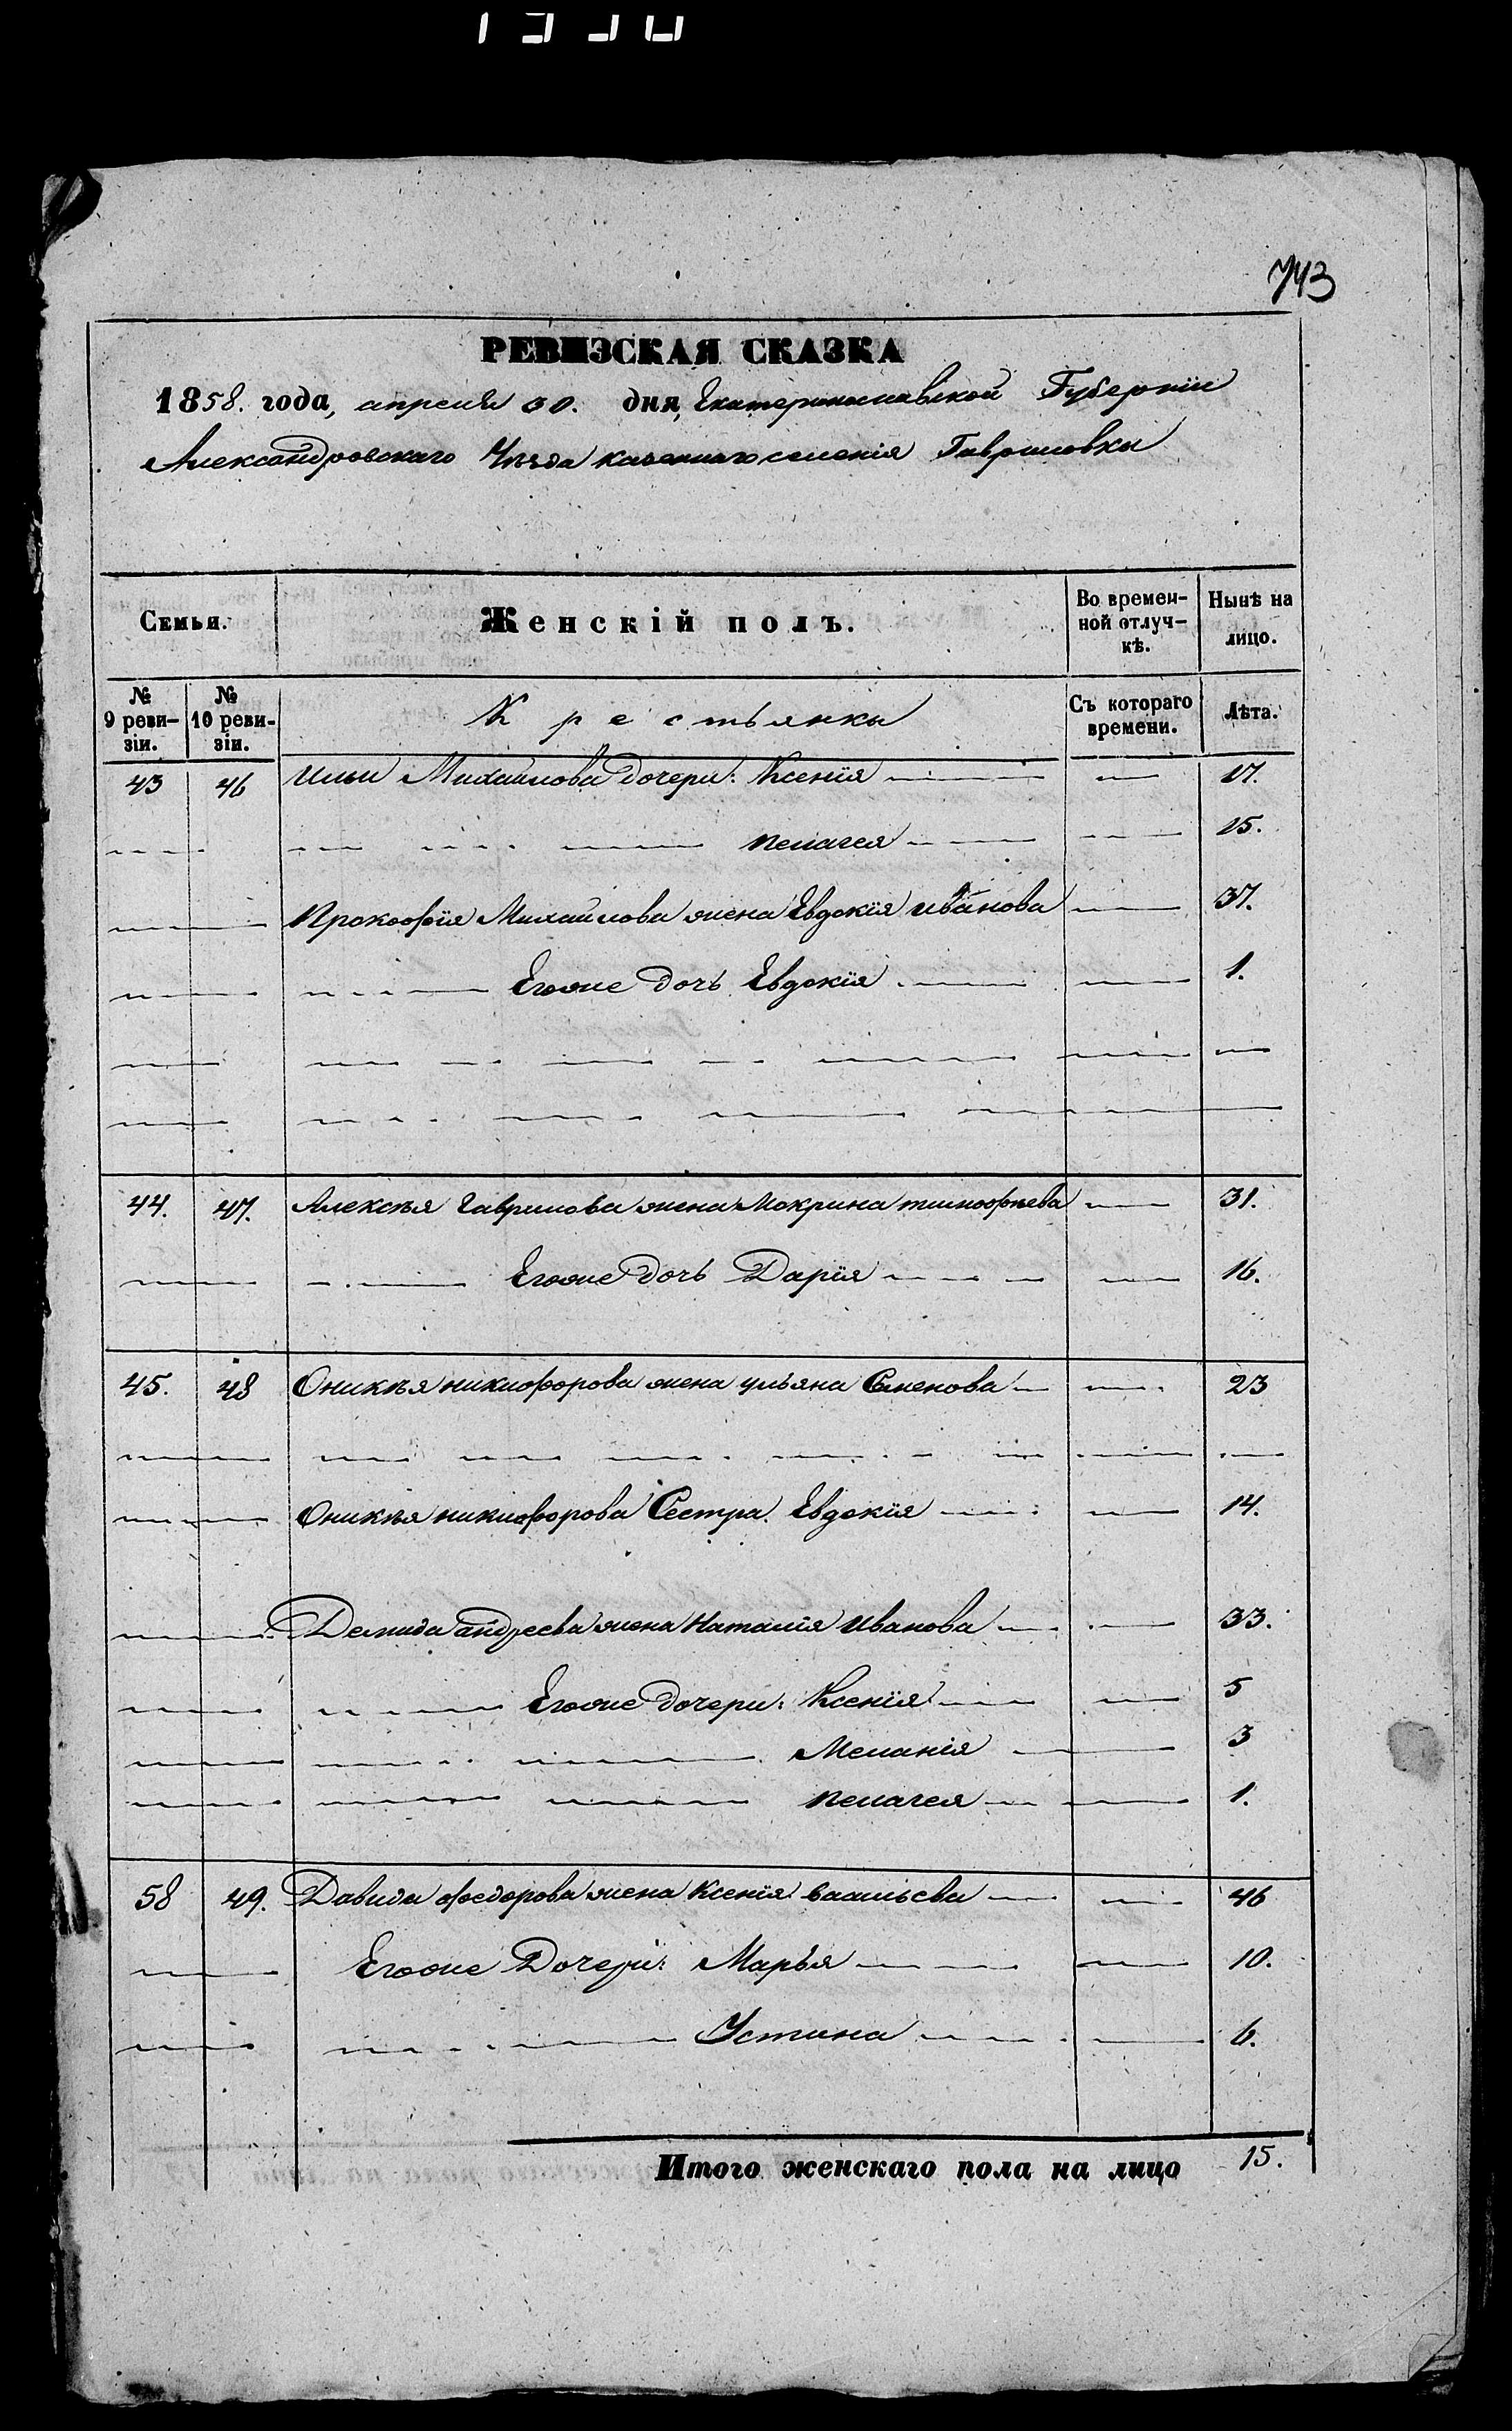 743
РЕВИЗСКАЯ СКАЗКА
1858. года, апреля 30. дня, Екатеринославской Губерніи
Александровскаго Уѣзда казеннаго селенія Гавриловки
Семьи. Женскій полъ. Во времен-ной отлуч-кѣ. Нынѣ на лицо.
№ 9 реви-зіи. № 10 реви-зіи. Крестьянки Съ котораго времени. Лѣта.
43 46 Ильи Михайлова дочери: Ксенія 17.
Пелагея 15.
Прокофія Михайлова жена Евдокія Иванова 37.
Егоже дочь Евдокія 1.
44. 47. Алексѣя Гаврилова жена Мокрина тимофѣева 31.
Егоже дочь Дарія 16.
45. 48 Оникѣя никифорова жена ульяна Семенова 23
Оникѣя никифорова Сестра Евдокія 14.
Демида андреева жена Наталія Иванова 33.
Егоже дочери: Ксенія 5
Меланія 3
Пелагея 1.
58 49. Давида федорова жена Ксенія васильева 46
Егоже Дочери: Марья 10.
Устина 6.
Итого женскаго пола на лицо 15.